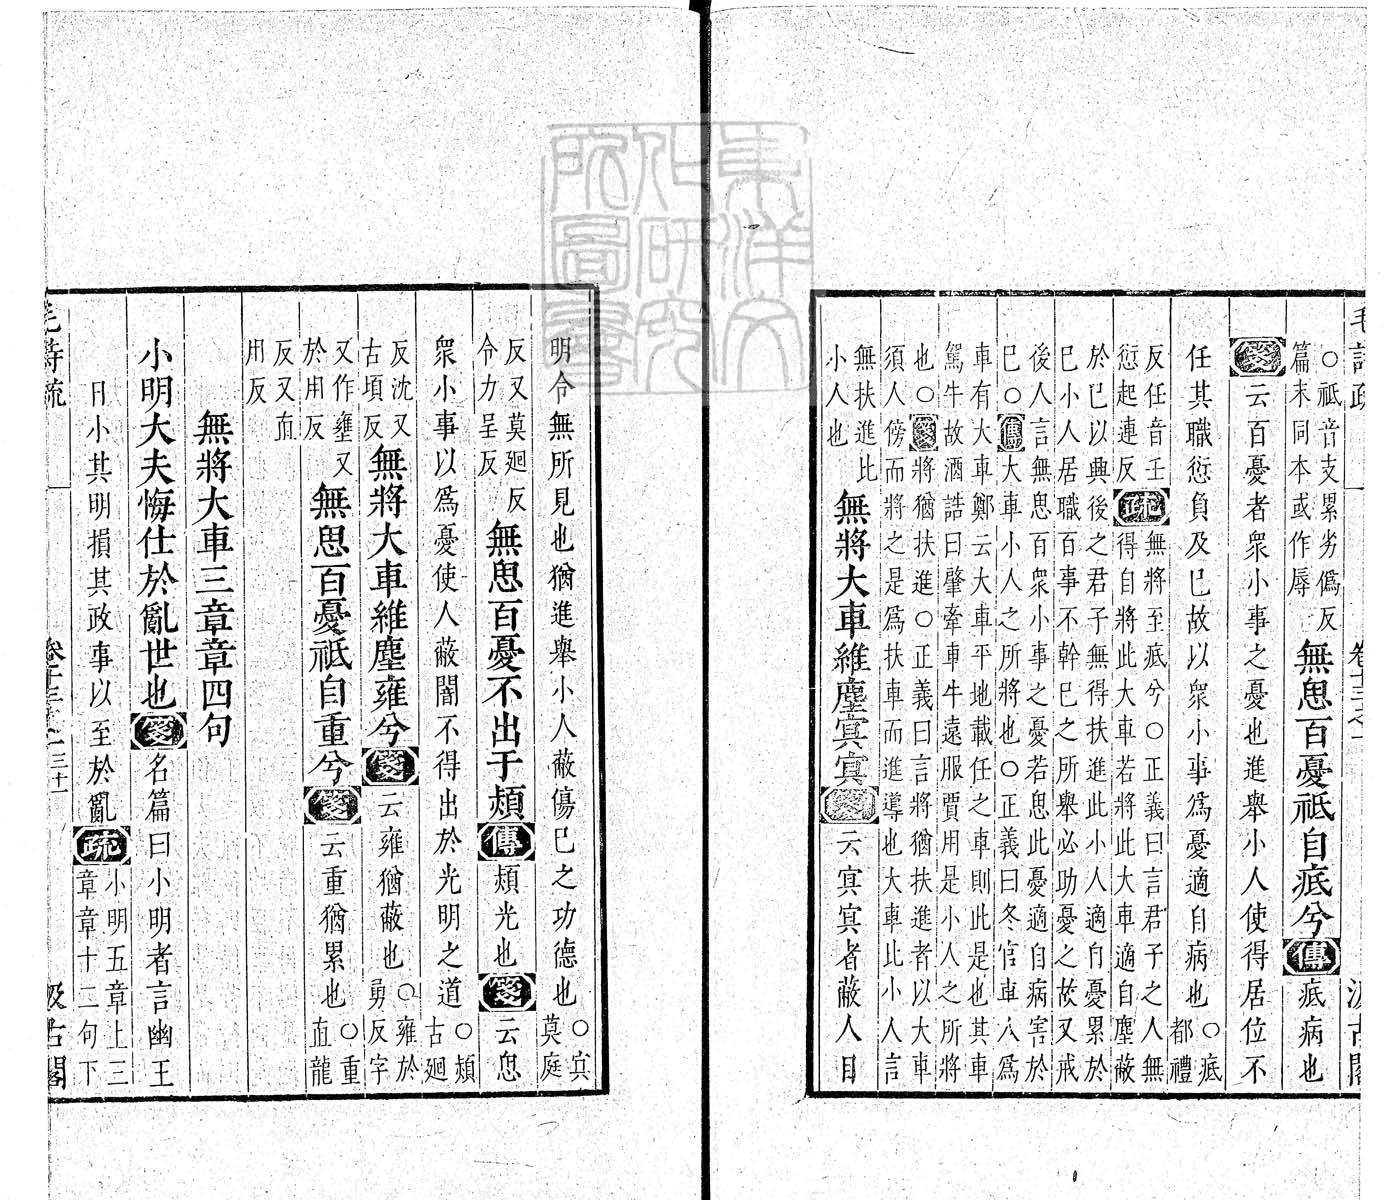 毛詩疏 卷十三之一 汲古閣
○祗音支累劣僞反
篇末同本或作辱
無思百憂祗自疧兮傳疧病也
箋云百憂者衆小事之憂也進舉小人使得居位不
任其職愆負及已故以衆小事爲憂適自病也○疧
都禮
反任音壬
愆起連反
疏無將至疧兮○正義曰言君子之人無
得自將此大車若將此大車適自塵蔽
於已以興後之君子無得扶進此小人適自憂累於
已小人居職百事不幹已之所舉必助憂之故又戒
後人言無思百衆小事之憂若思此憂適自病害於
已○傳大車小人之所將也○正義曰冬官車人爲
車有大車鄭云大車平地載任之車則此是也其車
駕牛故酒誥曰肇牽車牛遠服賈用是小人之所將
也○箋將猶扶進○正義曰言將猶扶進者以大車
須人傍而將之是爲扶車而進導也大車比小人言
無扶進比
小人也
無將大車維塵冥冥箋云冥冥者蔽人目
明令無所見也猶進舉小人蔽傷已之功德也○冥
莫庭
反又莫迴反
令力呈反
無思百憂不出于熲傳熲光也箋云思
衆小事以爲憂使人蔽闇不得出於光明之道○熲
古迴
反沈又
古頃反
無將大車維塵雍兮箋云雍猶蔽也○雍於
勇反字
又作壅又
於用反
無思百憂祗自重兮箋云重猶累也○重
直龍
反又直
用反
無將大車三章章四句
小明大夫悔仕於亂世也箋名篇曰小明者言幽王
日小其明損其政事以至於亂疏小明五章上三
章章十二句下
毛詩疏 卷十三之一 三十一 汲古閣
東洋文化研究所圖書